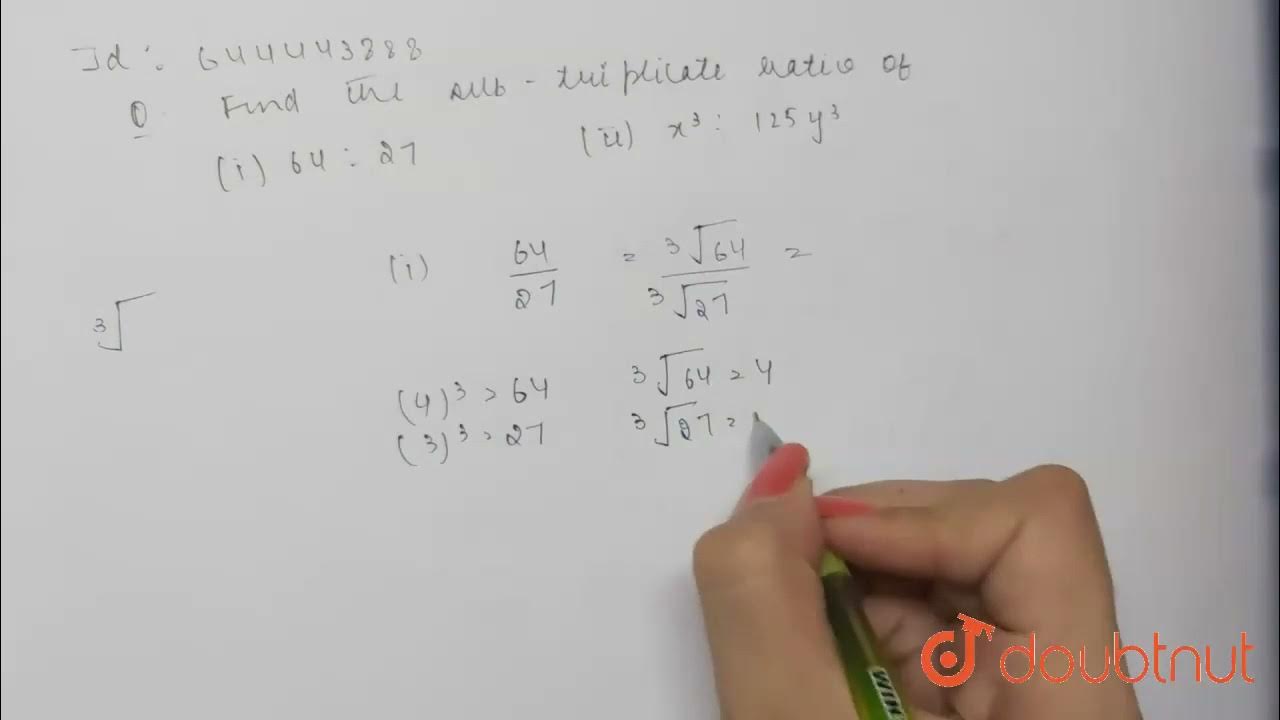 Id : 644443888
Q Find the sub-triplicate ratio of
(i) 64 : 27 (ii) x³ : 125y³
(i) 64/27 = ³√64 / ³√27 =
³√
(4)³ = 64 ³√64 = 4
(3)³ = 27 ³√27 =
WIN
doubtnut